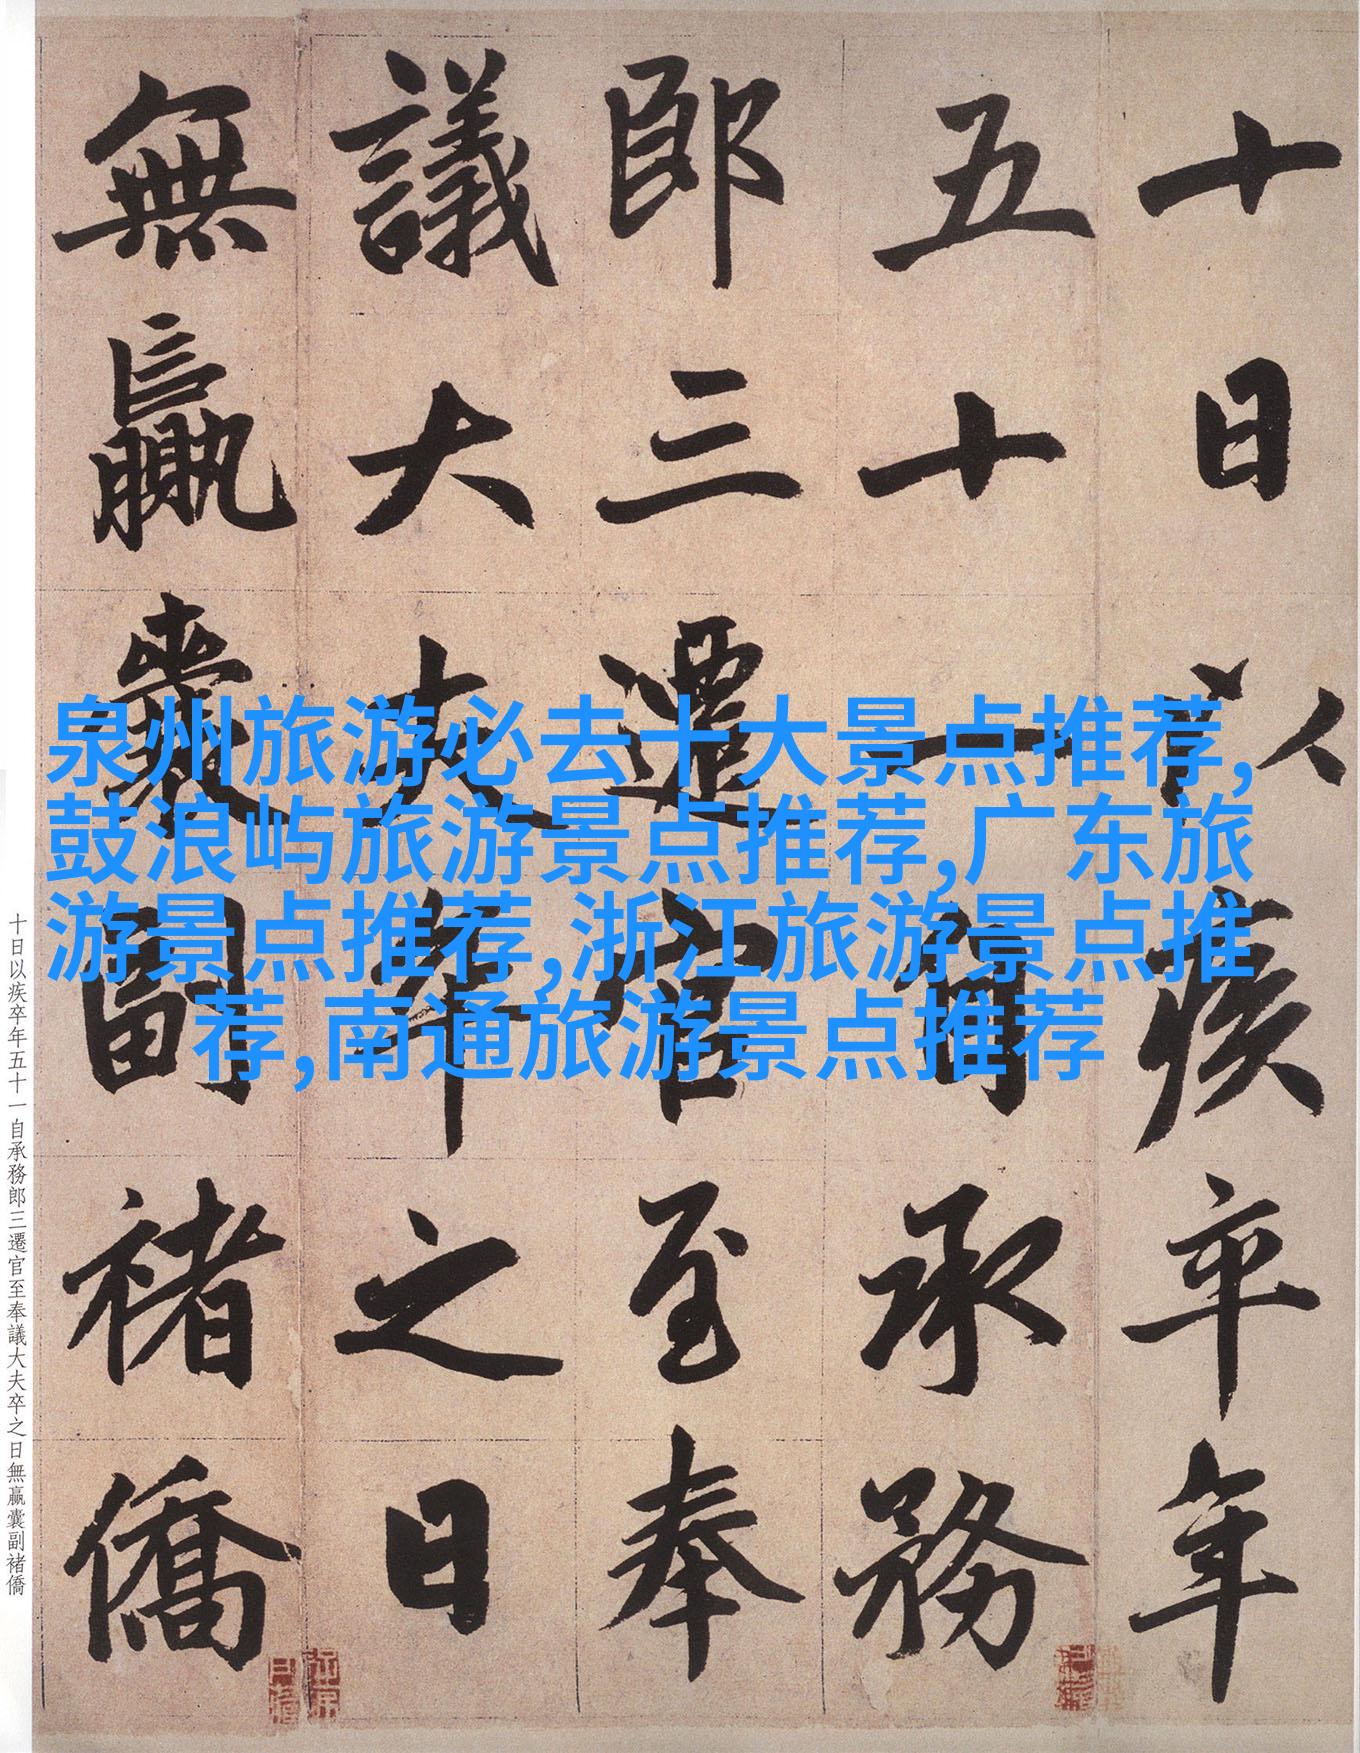 十日以疾卒年
五十一自承務
郎三遷官至奉
議大夫卒之日
無贏囊副褚僑
泉州旅游必去十大景点推荐,
鼓浪屿旅游景点推荐,广东旅
游景点推荐,浙江旅游景点推
荐,南通旅游景点推荐
十日以疾卒年五十一自承務郎三遷官至奉議大夫卒之日無贏囊副褚僑